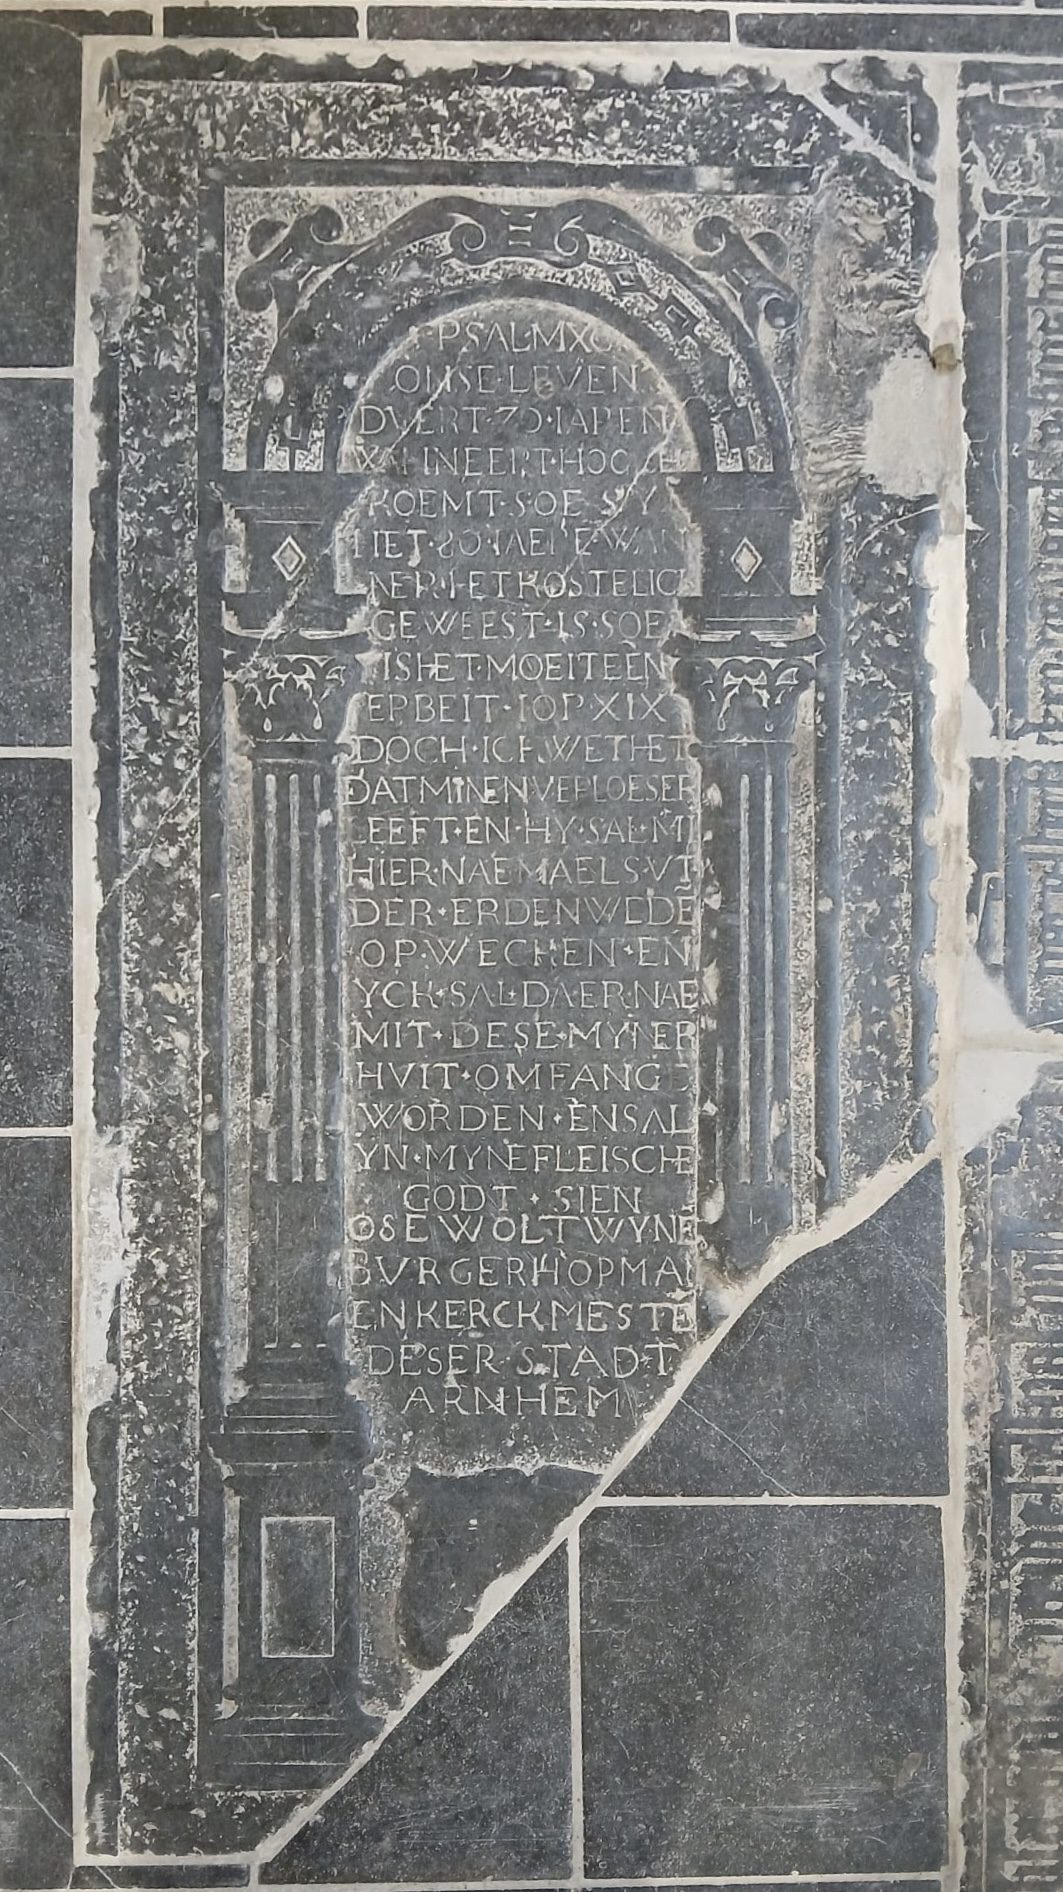 PSALM XC
ONSE·LEVEN
DVERT·70·IAREN
WANNEERT·HOOCH
KOEMT·SOE·SY
HET·80·IAERE·WAN
NER·HET KOSTELICK
GEWEEST·IS·SOE
ISHET·MOEITE EN
ERBEIT·IOP·XIX
DOCH·ICK WET HET
DAT MINEN VERLOESER
LEEFT·EN·HY·SAL·MI
HIER·NAEMAELS·VT
DER·ERDEN WEDE
OP·WECKEN·EN
YCK·SAL·DAER·NAE
MIT·DESE·MYNER
HVIT·OMFANGE
WORDEN·EN SAL
YN·MYNE FLEISCHE
GODT·SIEN
WOLT WYNE
BVRGERHOPMA
EN KERCKMESTE
DESER·STADT
ARNHEM